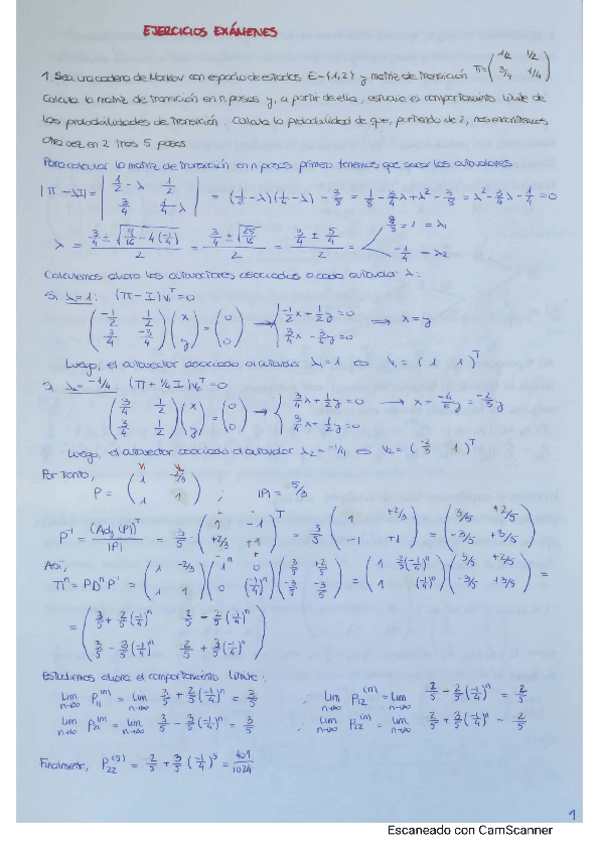 EJERCICIOS EXÁMENES
1. Sea una cadena de Markov con espacio de estados E={1,2} y matriz de transición Π = ( 1/2 1/2 ; 3/4 1/4 )
Calcula la matriz de transición en n pasos y, a partir de ella, estudia el comportamiento límite de
las probabilidades de transición. Calcula la probabilidad de que, partiendo de 2, nos encontremos
otra vez en 2 tras 5 pasos
Para calcular la matriz de transición en n pasos primero tenemos que sacar los autovalores
|Π - λI| = | 1/2 - λ 1/2 ; 3/4 1/4 - λ | = (1/2 - λ)(1/4 - λ) - 3/8 = 1/8 - 3/4 λ + λ² - 3/8 = λ² - 3/4 λ - 1/4 = 0
λ = (3/4 ± √(9/16 - 4(-1/4))) / 2 = (3/4 ± √(25/16)) / 2 = (3/4 ± 5/4) / 2 = 8/8 = 1 = λ1
-1/4 = λ2
Calculemos ahora los autovectores asociados a cada autovalor λ:
Si λ=1: (Π - I)V1ᵀ = 0
( -1/2 1/2 ; 3/4 -3/4 ) ( x ; y ) = ( 0 ; 0 ) → { -1/2 x + 1/2 y = 0 ; 3/4 x - 3/4 y = 0 → x = y
Luego, el autovector asociado al autovalor λ1 = 1 es V1 = ( 1 1 )ᵀ
Si λ = -1/4 (Π + 1/4 I)V2ᵀ = 0
( 3/4 1/2 ; 3/4 1/2 ) ( x ; y ) = ( 0 ; 0 ) → { 3/4 x + 1/2 y = 0 ; 3/4 x + 1/2 y = 0 → x = -4/6 y = -2/3 y
Luego, el autovector asociado al autovalor λ2 = -1/4 es V2 = ( -2/3 1 )ᵀ
Por tanto, V1 V2
P = ( 1 -2/3 ; 1 1 ) ; |P| = 5/3
P⁻¹ = (Adj (P))ᵀ / |P| = 3/5 ( 1 -1 ; +2/3 +1 )ᵀ = 3/5 ( 1 +2/3 ; -1 +1 ) = ( 3/5 +2/5 ; -3/5 +3/5 )
Así,
Πⁿ = PDⁿP⁻¹ = ( 1 -2/3 ; 1 1 ) ( 1ⁿ 0 ; 0 (-1/4)ⁿ ) ( 3/5 +2/5 ; -3/5 +3/5 ) = ( 1 -2/3(-1/4)ⁿ ; 1 (-1/4)ⁿ ) ( 3/5 +2/5 ; -3/5 +3/5 ) =
= ( 3/5 + 2/5(-1/4)ⁿ 2/5 - 2/5(-1/4)ⁿ ; 3/5 - 3/5(-1/4)ⁿ 2/5 + 3/5(-1/4)ⁿ )
Estudiemos ahora el comportamiento límite:
lim n→∞ P11⁽ⁿ⁾ = lim n→∞ 3/5 + 2/5(-1/4)ⁿ = 3/5 ; lim n→∞ P12⁽ⁿ⁾ = lim n→∞ 2/5 - 2/5(-1/4)ⁿ = 2/5
lim n→∞ P21⁽ⁿ⁾ = lim n→∞ 3/5 - 3/5(-1/4)ⁿ = 3/5 ; lim n→∞ P22⁽ⁿ⁾ = lim n→∞ 2/5 + 3/5(-1/4)ⁿ = 2/5
Finalmente, P22⁽⁵⁾ = 2/5 + 3/5(-1/4)⁵ = 409/1024
1
Escaneado con CamScanner